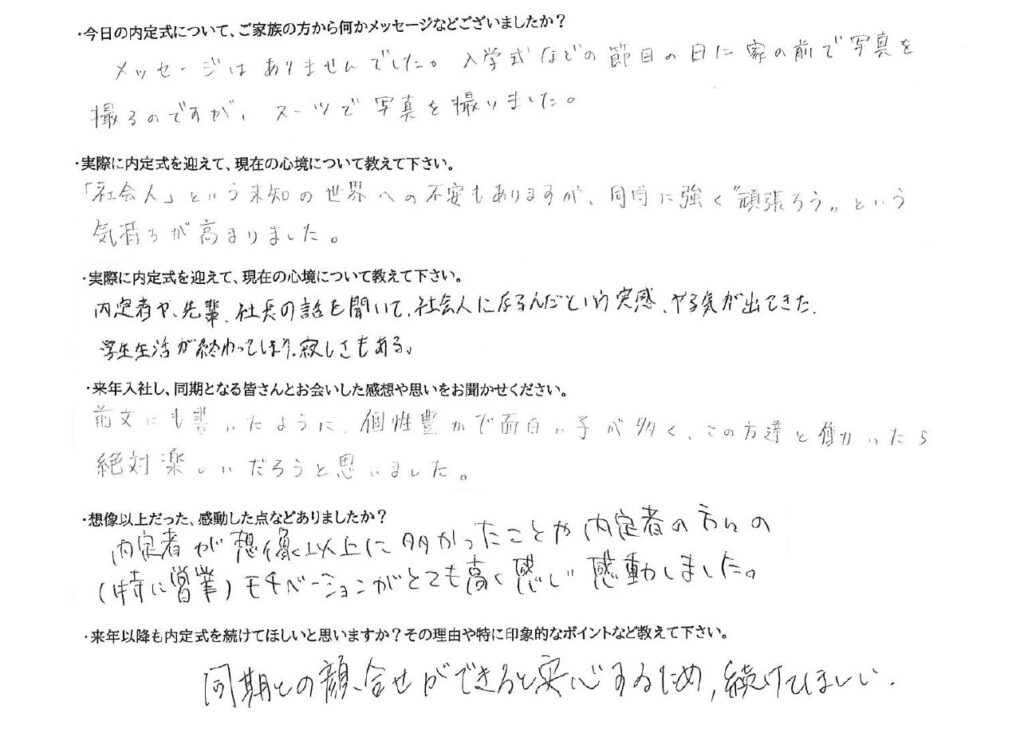 ・今日の内定式について、ご家族の方から何かメッセージなどございましたか？
メッセージはありませんでした。入学式などの節目の日に家の前で写真を
撮るのですが、スーツで写真を撮りました。
・実際に内定式を迎えて、現在の心境について教えて下さい。
「社会人」という未知の世界への不安もありますが、同時に強く“頑張ろう„という
気持ちが高まりました。
・実際に内定式を迎えて、現在の心境について教えて下さい。
内定者や、先輩、社長の話を聞いて、社会人になるんだという実感、やる気が出てきた。
学生生活が終わってしまう、寂しさもある。
・来年入社し、同期となる皆さんとお会いした感想や思いをお聞かせください。
前文にも書いたように、個性豊かで面白い子が多く、この方達と働かいたら
絶対楽しいだろうと思いました。
・想像以上だった、感動した点などありましたか？
内定者が想像以上に多かったことや内定者の方々の
(特に営業)モチベーションがとても高く感じ感動しました。
・来年以降も内定式を続けてほしいと思いますか？その理由や特に印象的なポイントなど教えて下さい。
同期との顔合せができると安心するため、続けてほしい。